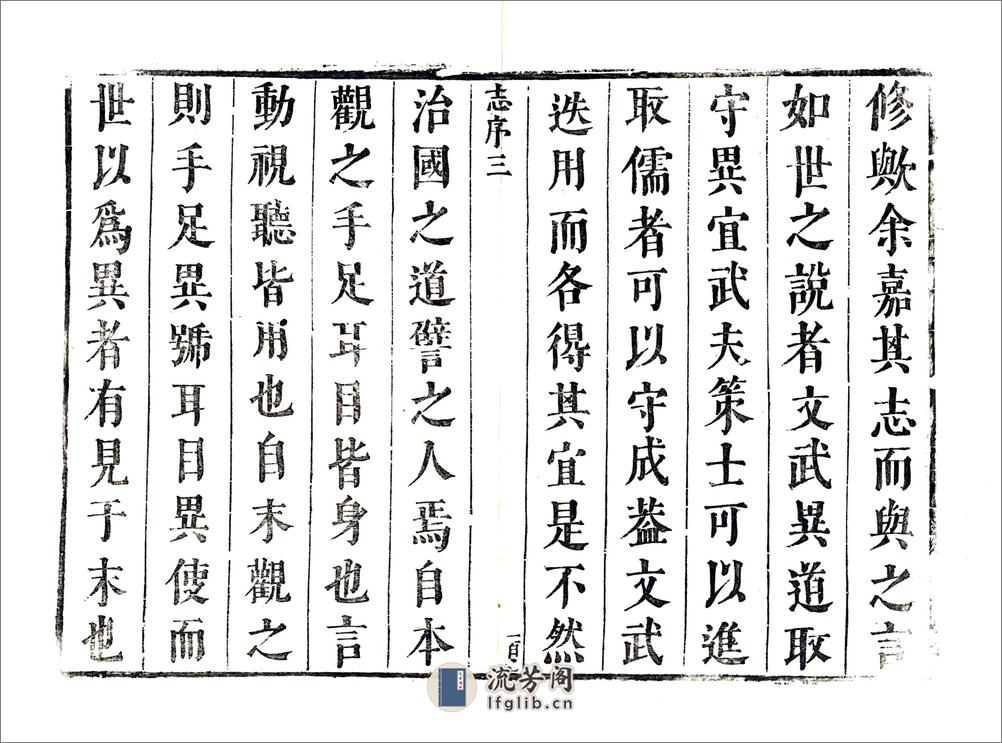 修歟余嘉其志而與之言
如世之說者文武異道取
守異宜武夫策士可以進
取儒者可以守成葢文武
迭用而各得其宜是不然
志序三
治國之道譬之人焉自本
觀之手足耳目皆身也言
動視聽皆用也自末觀之
則手足異號耳目異使而
世以爲異者有見于末也
流芳阁
lfglib.cn